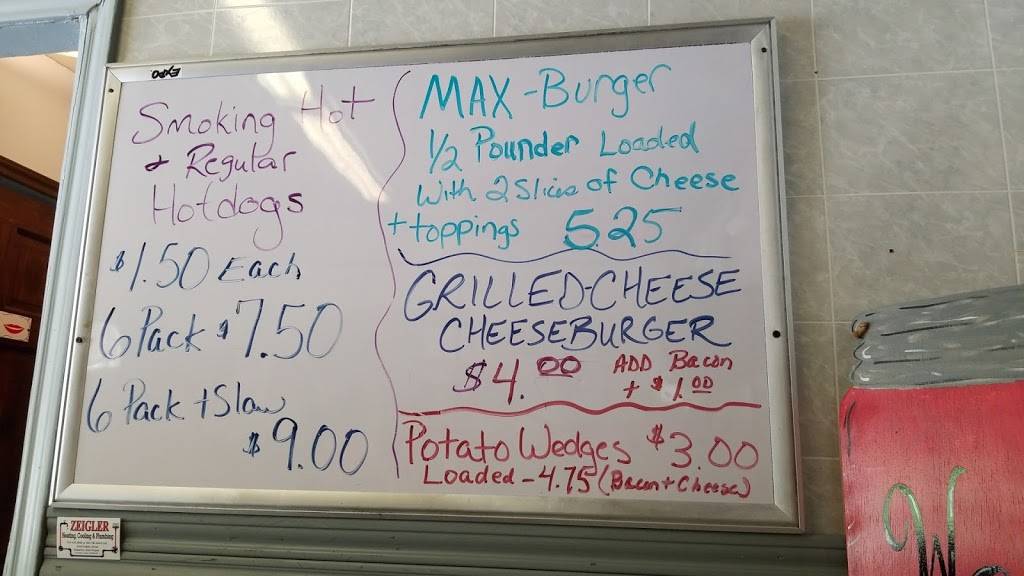 EXPO
Smoking Hot
+ Regular
Hotdogs
$1.50 Each
6 Pack $7.50
6 Pack + Slaw
$9.00
MAX-Burger
1/2 Pounder Loaded
With 2 Slices of Cheese
+ toppings 5.25
GRILLED-CHEESE
CHEESEBURGER
$4.00 ADD Bacon
+ $1.00
Potato Wedges $3.00
Loaded - 4.75 (Bacon + Cheese)
ZEIGLER
Heating, Cooling & Plumbing
W